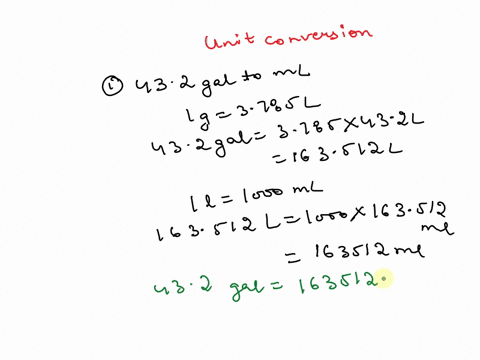 Unit conversion
(i) 43.2 gal to mL
1g = 3.785L
43.2 gal = 3.785 × 43.2L
= 163.512 L
1l = 1000 mL
163.512 L = 1000 × 163.512
ml
= 163512 ml
43.2 gal = 163512.